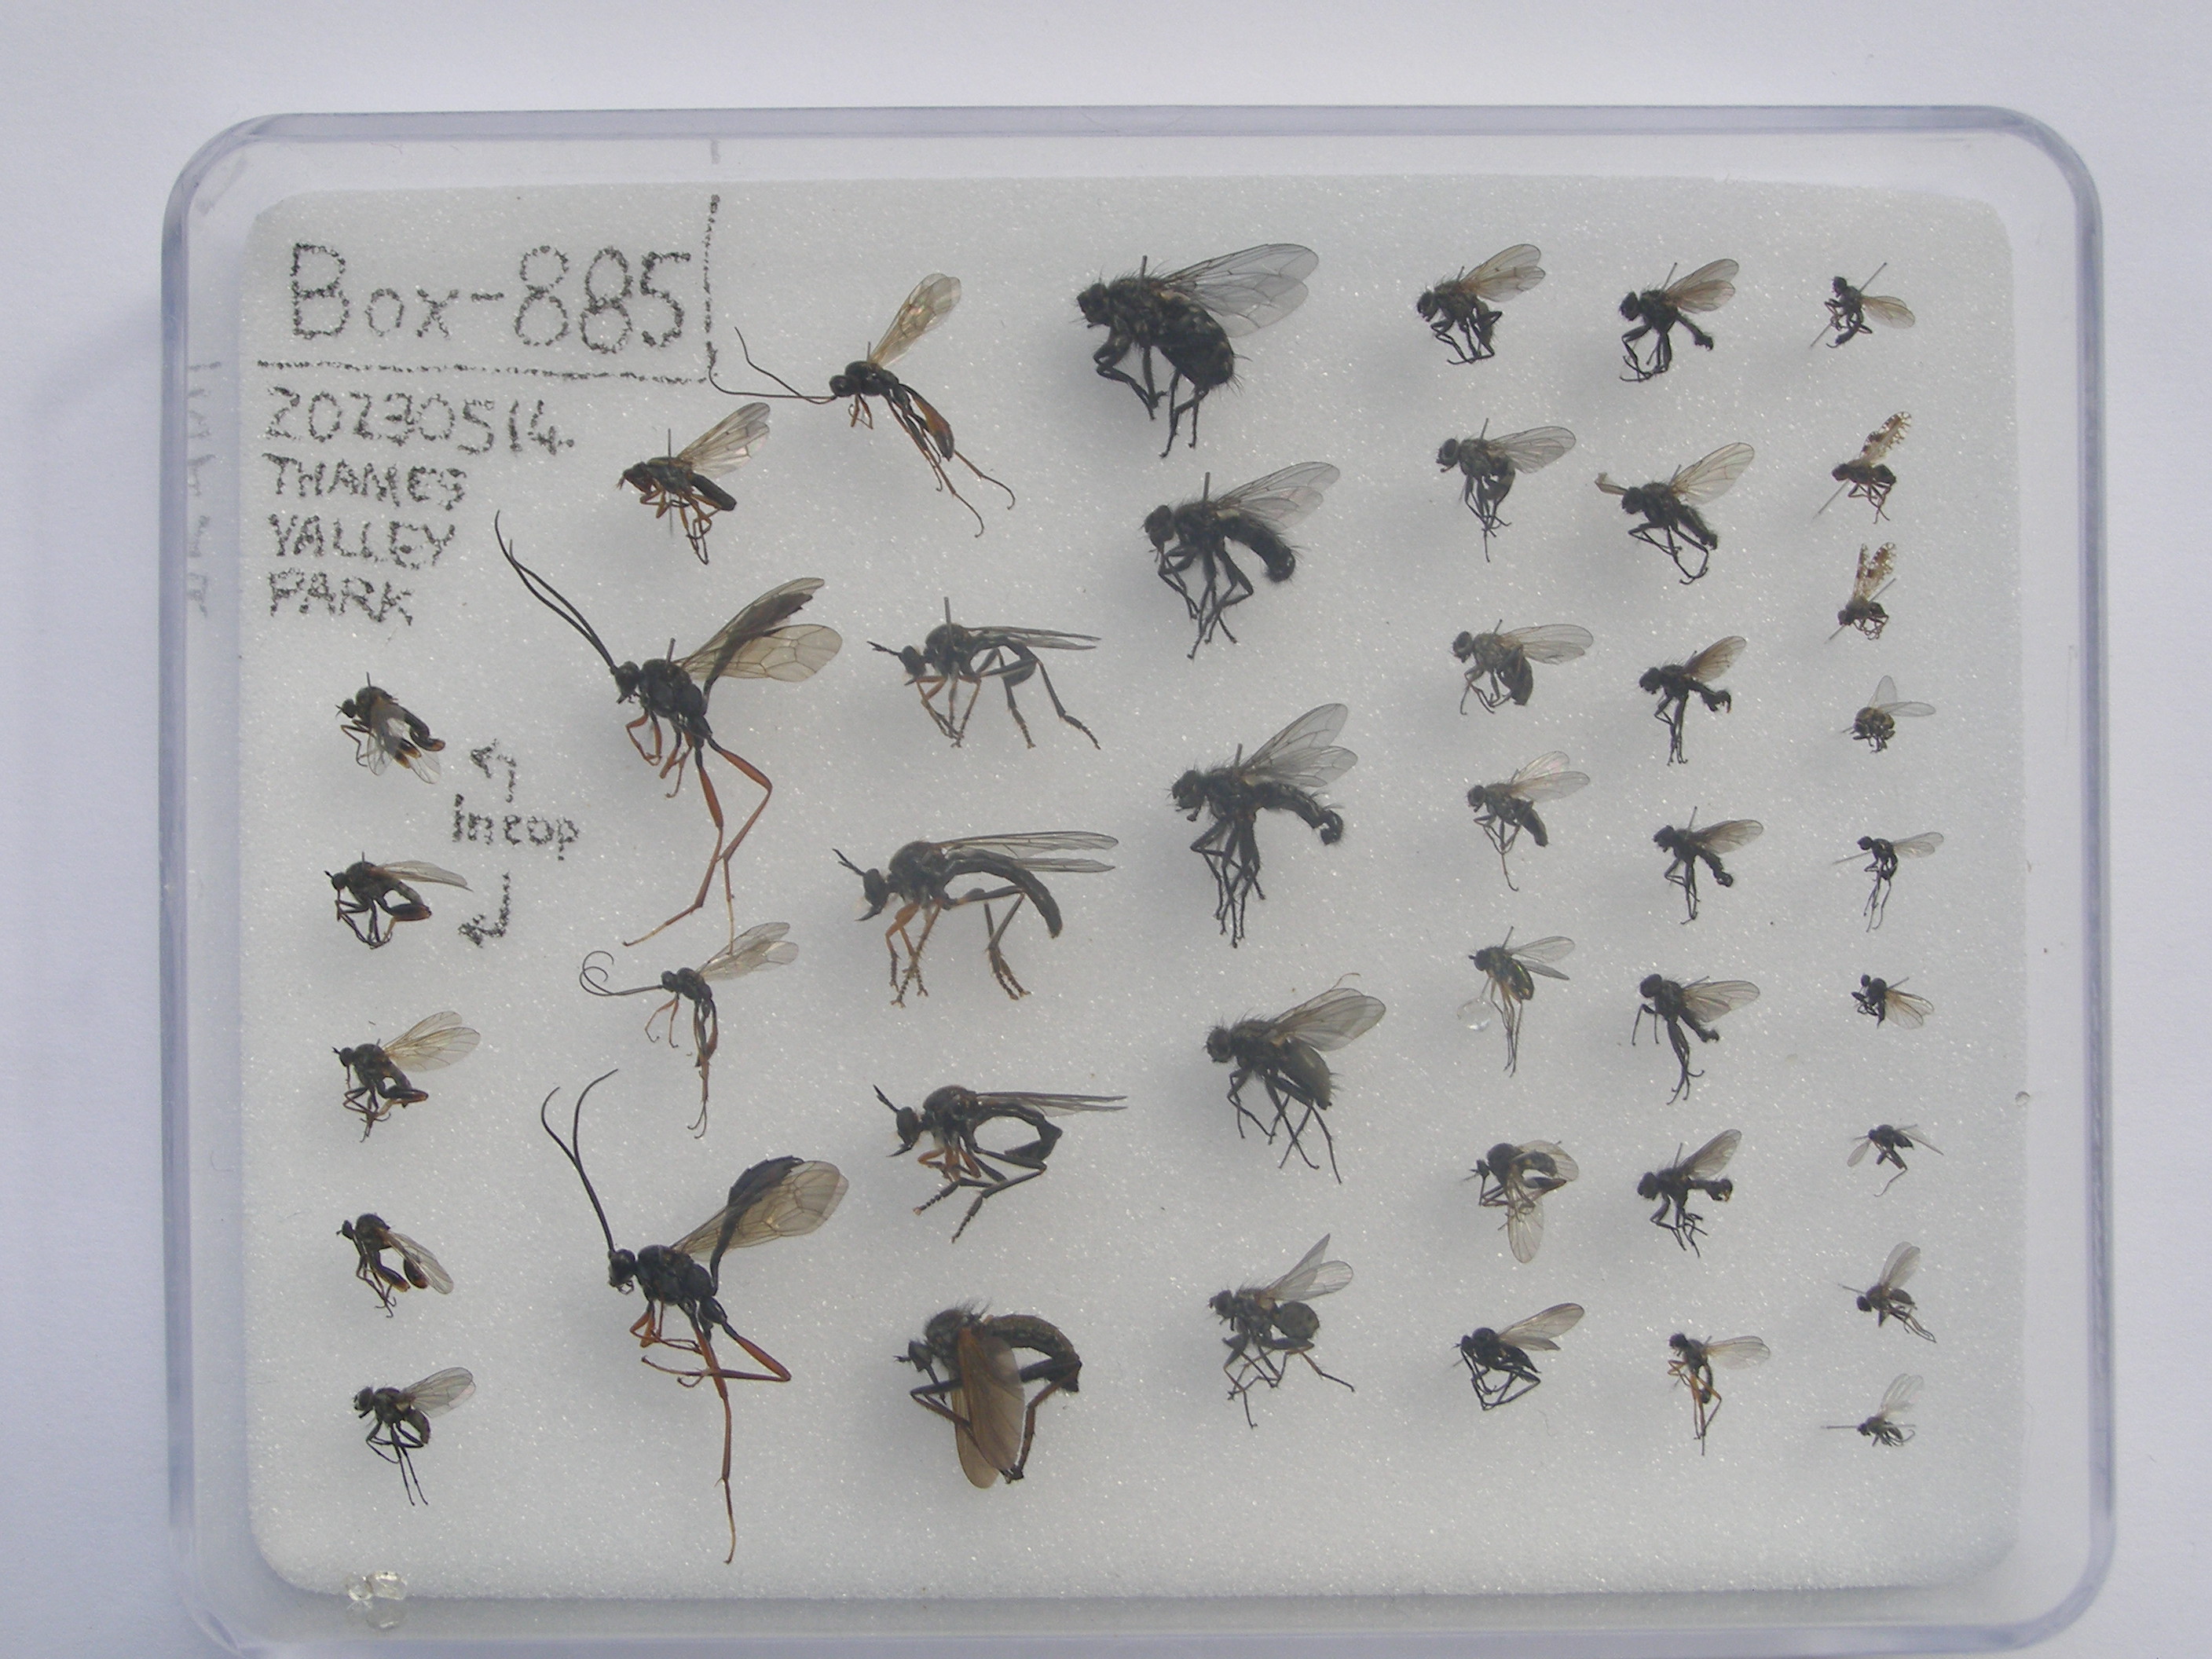 Box-885
20230514
THAMES
VALLEY
PARK
in cop